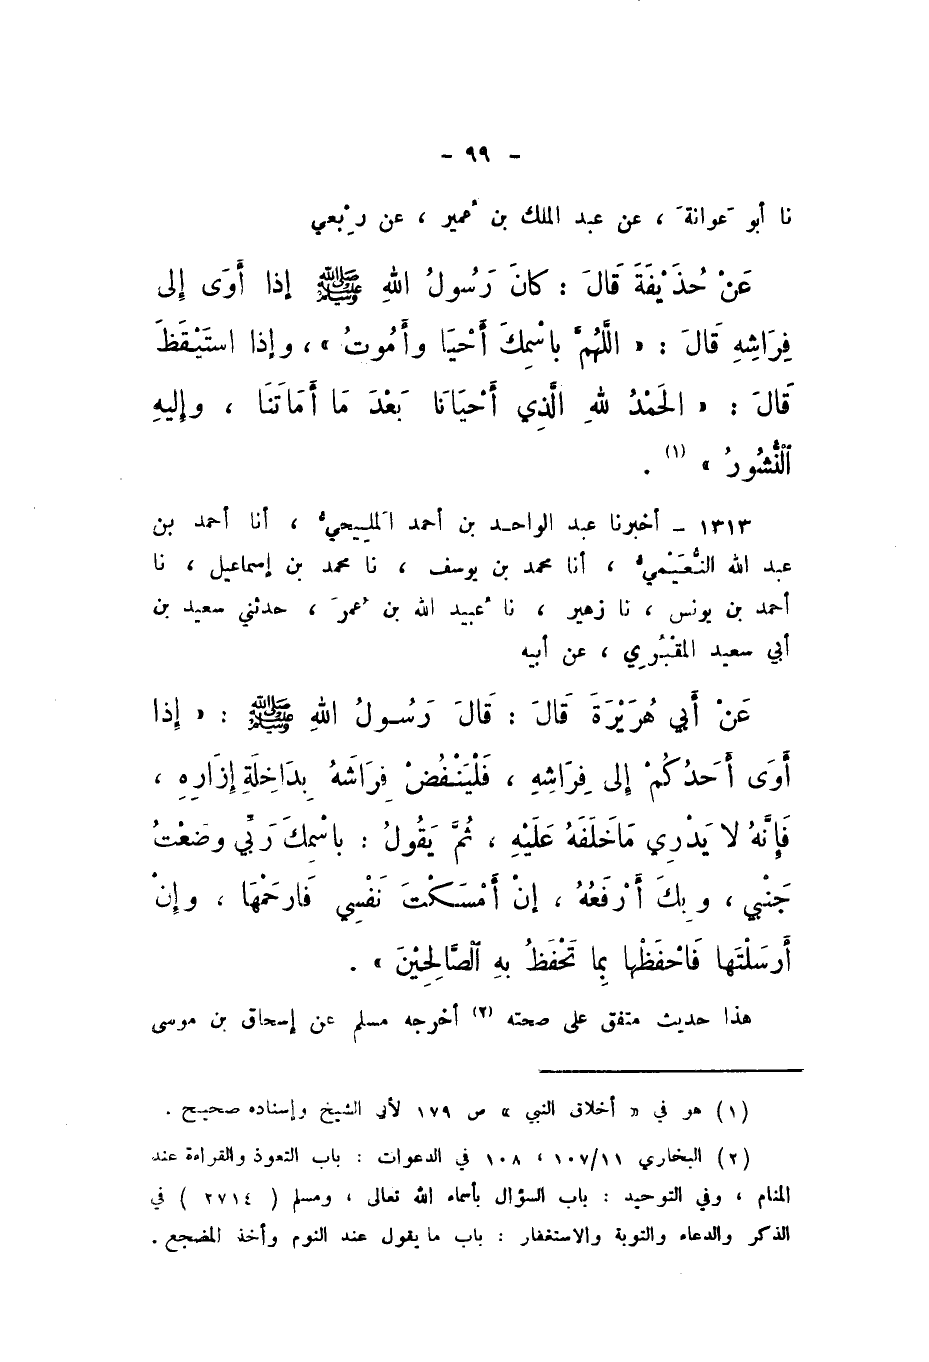 - ٩٩ -
نا أبو عَوانةَ ، عن عبد الملك بن عُمير ، عن رِبْعي
عَنْ حُذَيْفَةَ قَالَ : كانَ رَسُولُ اللهِ ﷺ إذا أَوَى إلى
فِرَاشِهِ قَالَ : « اللَّهُمَّ باسْمِكَ أَحْيَا وأَمُوتُ » ، وإذا استَيْقَظَ
قَالَ : « الحَمْدُ للهِ الَّذِي أَحْيَانَا بَعْدَ مَا أَمَاتَنَا ، وإليهِ
النُّشُورُ » (١) .
١٣١٣ – أخبرنا عبد الواحد بن أحمد المَلِيحيُّ ، أنا أحمد بن
عبد الله النُّعَيْمِيُّ ، أنا محمد بن يوسف ، نا محمد بن إسماعيل ، نا
أحمد بن يونس ، نا زهير ، نا عُبيد الله بن عُمرَ ، حدثني سعيد بن
أبي سعيد المقْبُرِي ، عن أبيه
عَنْ أَبي هُرَيْرَةَ قَالَ : قَالَ رَسُولُ اللهِ ﷺ : « إذا
أَوَى أَحَدُكُمْ إلى فِرَاشِهِ ، فَلْيَنْفُضْ فِرَاشَهُ بِدَاخِلَةِ إزَارِهِ ،
فَإنَّهُ لا يَدْرِي مَا خَلَفَهُ عَلَيْهِ ، ثُمَّ يَقُولُ : باسْمِكَ رَبِّي وضَعْتُ
جَنْبي ، وبِكَ أَرْفَعُهُ ، إنْ أَمْسَكْتَ نَفْسِي فَارحَمْهَا ، وإنْ
أَرسَلْتَها فَاحْفَظْها بِما تَحْفَظُ بهِ الصَّالِحِيْنَ » .
هذا حديث متفق على صحته (٢) أخرجه مسلم عن إسحاق بن موسى
(١) هو في « أخلاق النبي » ص ١٧٩ لأبي الشيخ وإسناده صحيح .
(٢) البخاري ١٠٧/١١ ، ١٠٨ في الدعوات : باب التعوذ والقراءة عند
المنام ، وفي التوحيد : باب السؤال بأسماء الله تعالى ، ومسلم ( ٢٧١٤ ) في
الذكر والدعاء والتوبة والاستغفار : باب ما يقول عند النوم وأخذ المضجع .